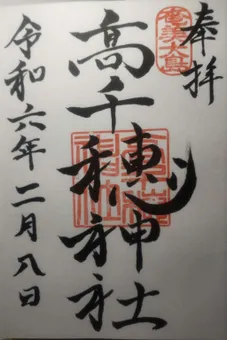 奉拝
奄美大島
高千穗神社
令和六年二月八日